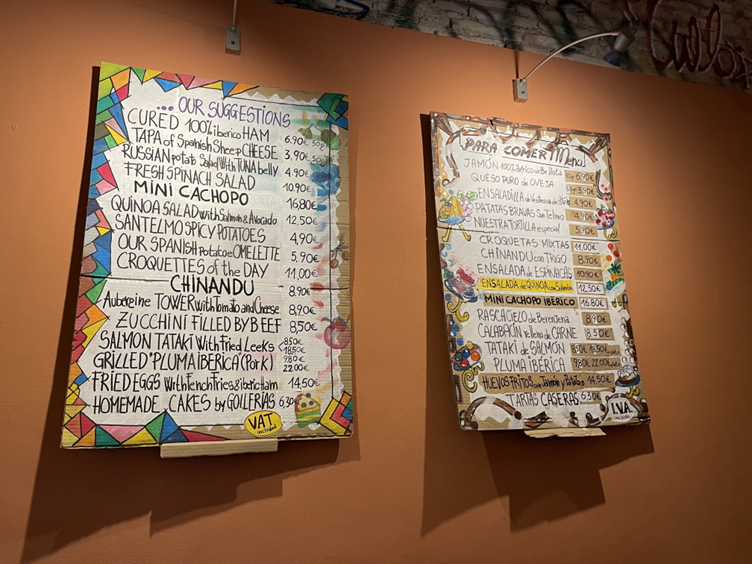 ... OUR SUGGESTIONS
CURED 100% iberico HAM 6.90€ 30g
TAPA of Spanish Sheep CHEESE 3,90€ 50g
RUSSIAN potato Salad With TUNA belly 4.90€
FRESH SPINACH SALAD 10,90€
MINI CACHOPO 16,80€
QUINOA SALAD with Salmon & Avocado 12.50€
SANTELMO SPICY POTATOES 4,90€
OUR SPANISH potatoe OMELETTE 5,90€
CROQUETTES of the DAY 11,00€
CHINANDU 8.90€
Aubereine TOWER with Tomato and Cheese 8,90€
ZUCCHINI FILLED BY BEEF 8,50€
SALMON TATAKI With Fried Leeks 8.50€ 18,50€
GRILLED "PLUMA IBERICA (Pork) 9.80€ 22.00€
FRIED EGGS With French Fries & Iberic Ham 14,50€
HOMEMADE CAKES by GOLLERIAS 6,30€
VAT included
PARA COMER!!! Menu
JAMÓN 100% Ibérico de Bellota 6,90€
QUESO PURO de OVEJA 3,90€
ENSALADILLA de 4,90€
PATATAS BRAVAS San Telmo 4,90€
NUESTRA TORTILLA especial 5,90€
CROQUETAS MIXTAS 11,00€
CHINANDU con TRIGO 8.90€
ENSALADA de ESPINACAS 10.90€
ENSALADA de QUINOA con Salmón 12,50€
MINI CACHOPO IBERICO 16.80€
RASCACIELO de Berenjena 8,90€
CALABACÍN relleno de CARNE 8.50€
TATAKI de SALMÓN 8.50€ 18,50€
PLUMA IBÉRICA 9.80€ 22.00€
HUEVOS FRITOS con Jamón y Patatas 14,50€
TARTAS CASERAS 6,30€
I.V.A.